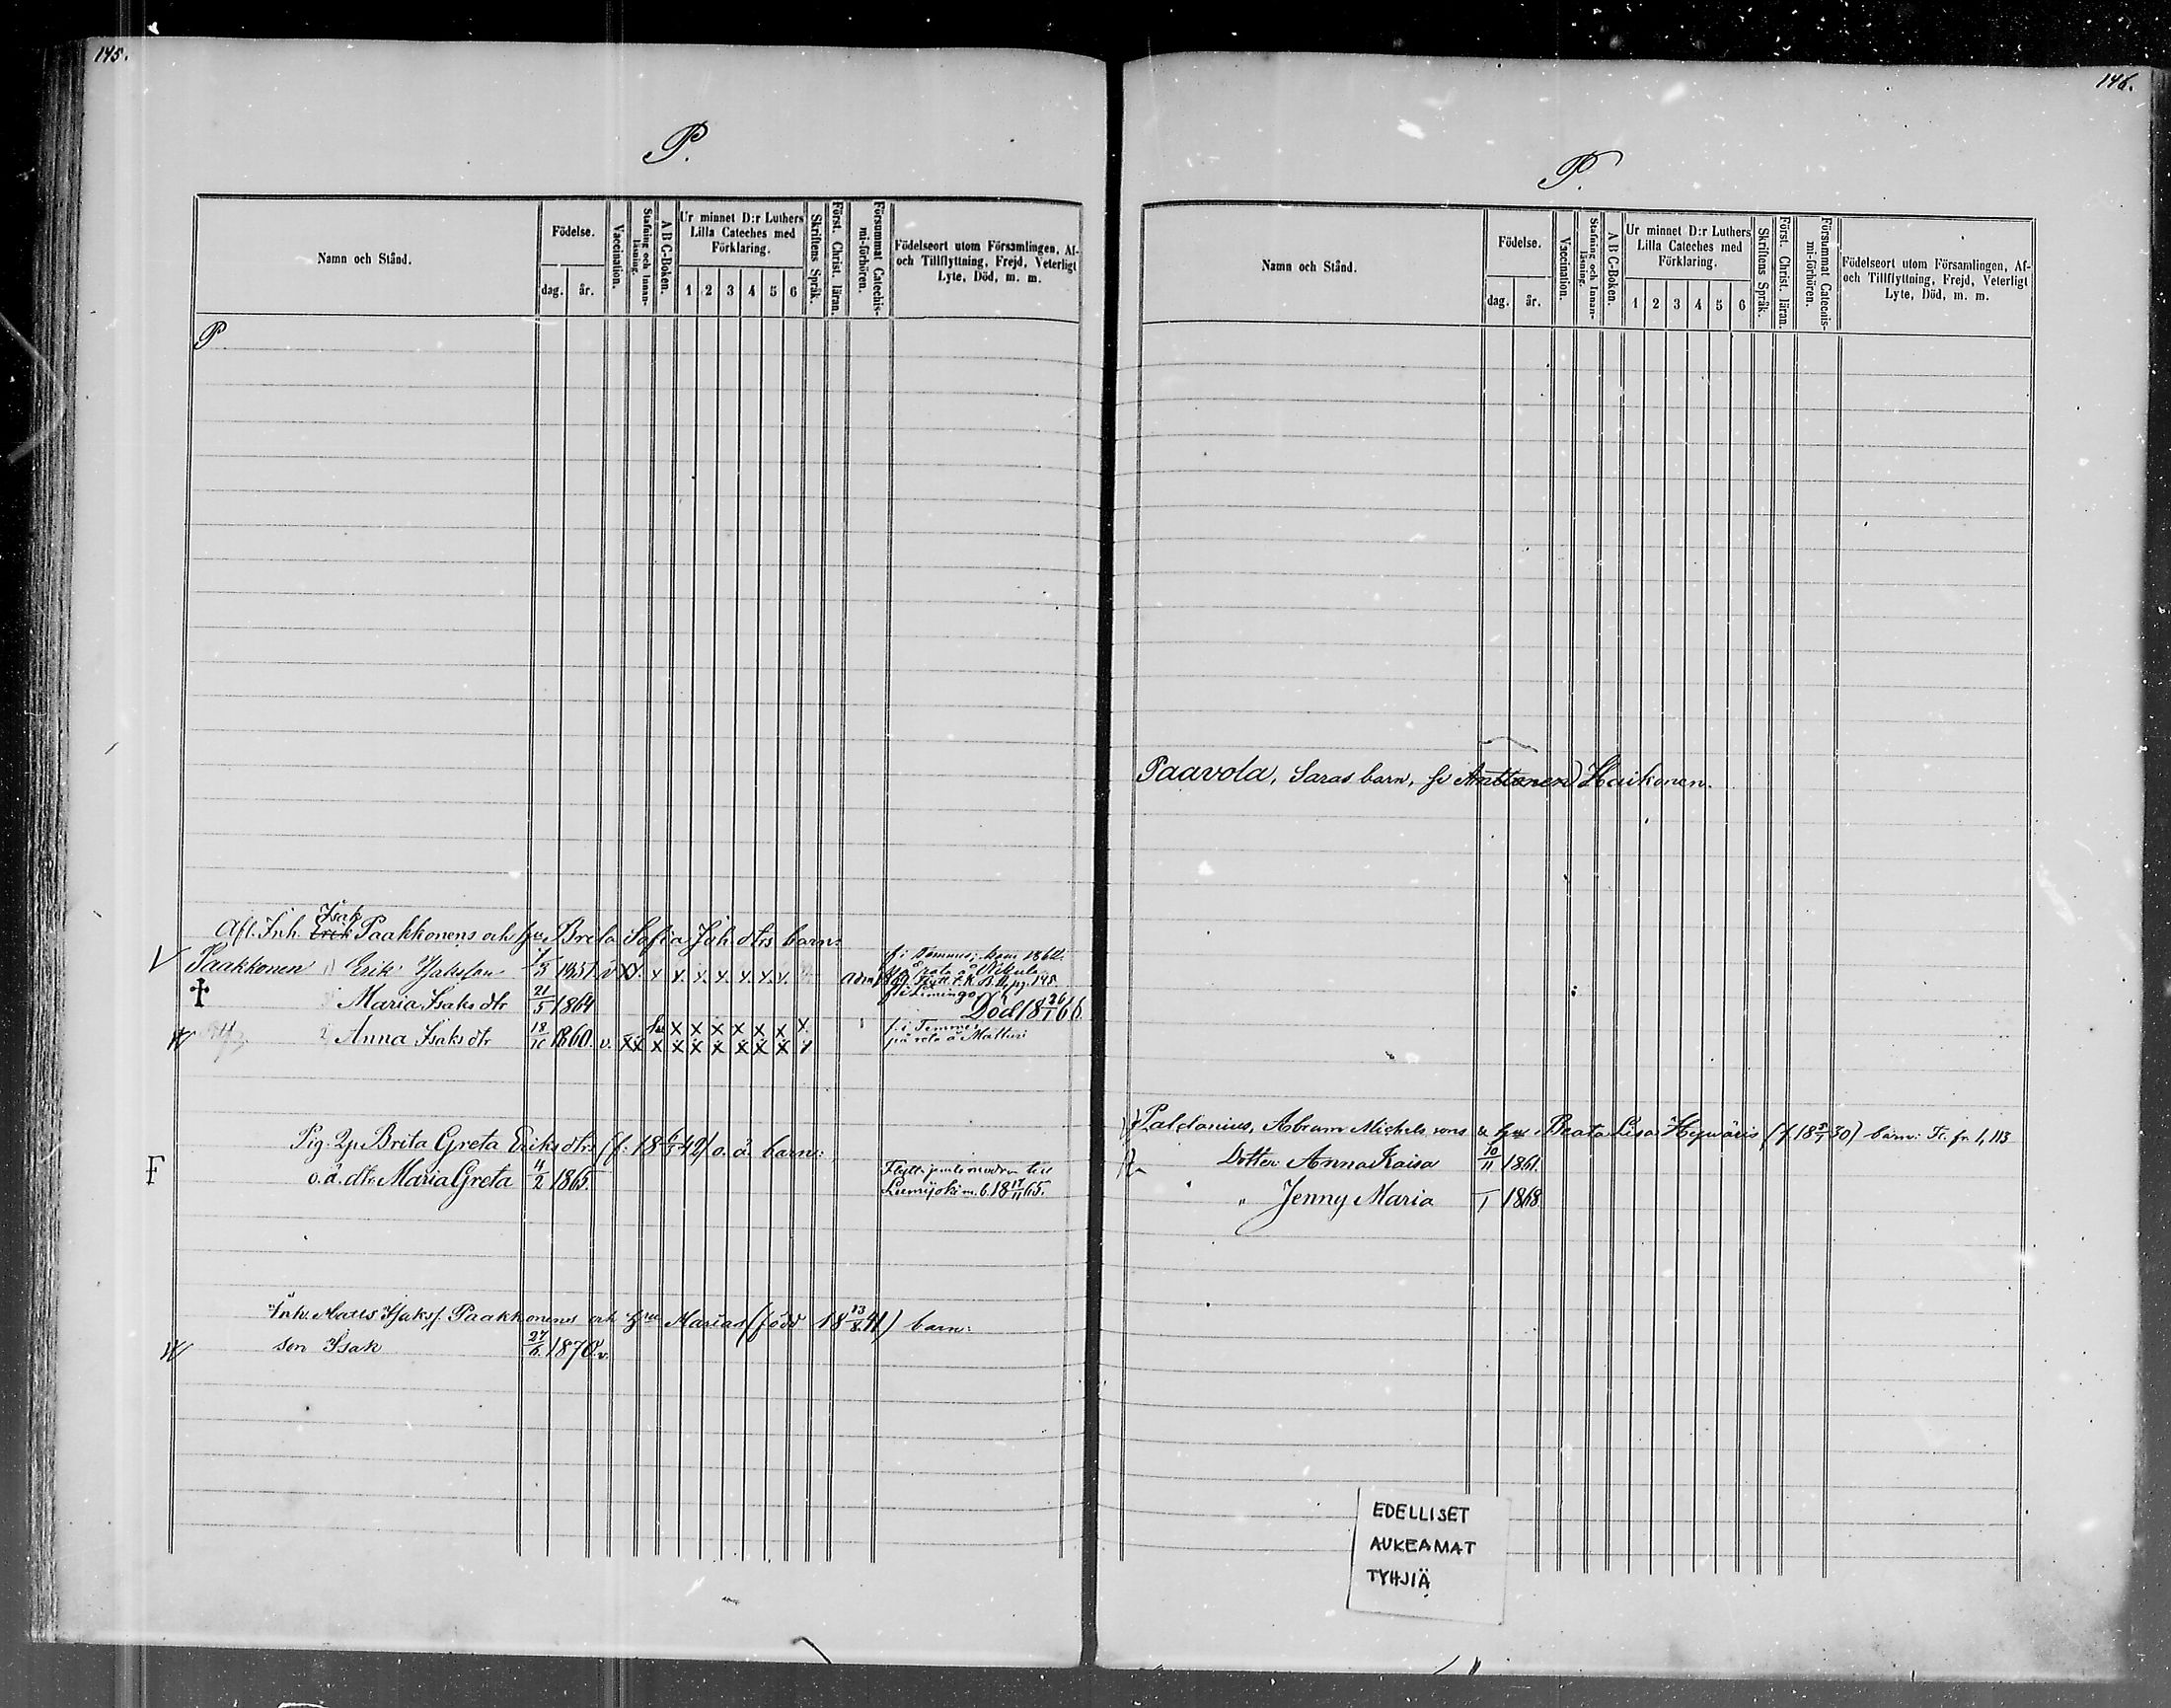 145.
P.
Namn och Stånd.
Födelse.
dag.
år.
Vaccination.
Stafning och Innanläsning.
A B C-Boken.
Ur minnet D:r Luthers
Lilla Cateches med
Förklaring.
1 2 3 4 5 6
Skriftens Språk.
Först. Christ. läran.
Försummat Catechismi-förhören.
Födelseort utom Församlingen, Af-
och Tillflyttning, Frejd, Veterligt
Lyte, Död, m. m.
P.
Isak
Afl. Inh. Erik Paakkonens och hu Brita Sofia Joh. dtrs barn:
f. i Temmes; kom 1862.
Paakkonen Erik Isaksson 1851 v
Maria Isaks dtr 21/5 1864 f. i Limingo Död 18 26/1 68.
Anna Isaks dtr 18/10 1860. v. X X X X X X X f. i Temmes
på rote å Matturi
Pig. Brita Greta Eriks dtrs (f. 18 42) o. ä. barn:
F o. ä. dtr Maria Greta 4/2 1865 Flytt. modren till
Lumijoki m. b. 18 65.
Inh. Matts Isakss. Paakkonens och Hru Marias (född 18 13/8 41) barn:
son Isak 27/6 1870 v.
146.
P.
Namn och Stånd.
Födelse.
dag.
år.
Vaccination.
Stafning och Innanläsning.
A B C-Boken.
Ur minnet D:r Luthers
Lilla Cateches med
Förklaring.
1 2 3 4 5 6
Skriftens Språk.
Först. Christ. läran.
Försummat Catechismi-förhören.
Födelseort utom Församlingen, Af-
och Tillflyttning, Frejd, Veterligt
Lyte, Död, m. m.
Paavola, Saras barn, se Anttonen Haikonen.
Paldanius, Abram Michels sons & hu Beata Lisa (f. 18 30) barn: fr. 1, 113
Dotter: Anna Kaisa 10/11 1861.
" Jenny Maria 1868.
EDELLISET
AUKEAMAT
TYHJIÄ